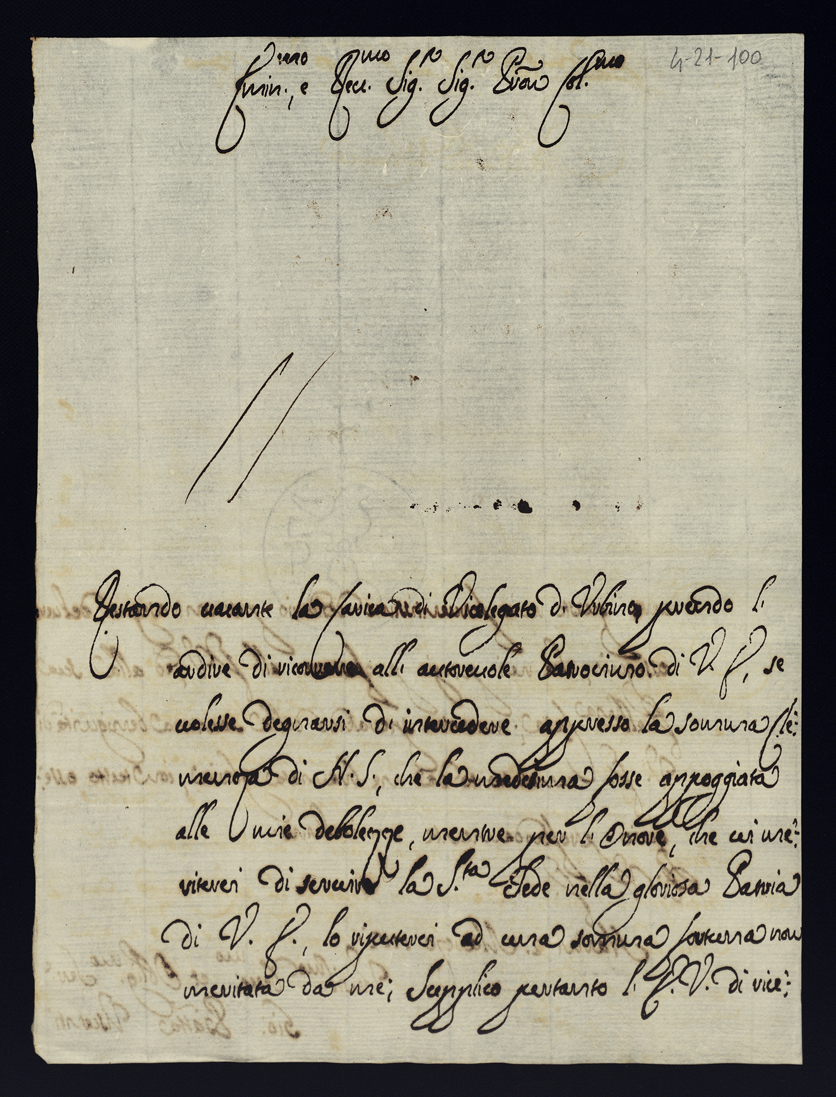 4-21-100
Emin.mo, e Rev.mo Sig.r Sig.r Pron Col.mo
Restando vacante la Carica di Vicelegato d'Urbino, prendo l'
ardire di ricorrere all'autorevole Patrocinio di V. E., se
volesse degnarsi di intercedere appresso la somma Cle:
menza di N. S., che la medesima fosse appoggiata
alle mie debolezze, mentre per l'onore, che vi me:
riterei di servire la S.ta Sede nella gloriosa Patria
di V. E., lo riputerei ad una somma fortuna non
meritata da me; Supplico pertanto l'E. V. di rice: